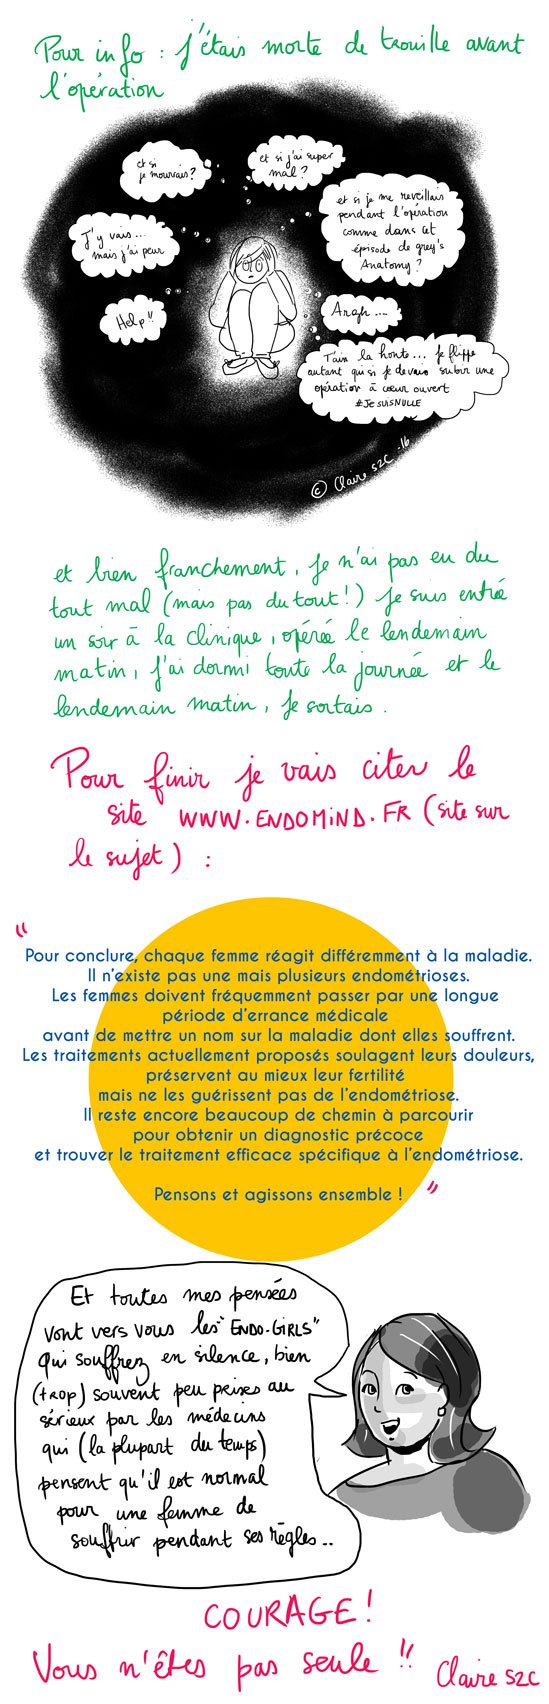 Pour info : j'étais morte de trouille avant
l'opération
et si
je mourrais ?
et si j'ai super
mal ?
et si je me reveillais
pendant l'opération
comme dans cet
épisode de grey's
Anatomy ?
J'y vais...
mais j'ai peur
Help !!
Argh ....
T'ain la honte... je flippe
autant qui si je devais subir une
opération à cœur ouvert
#JESUISNULLE
© Claire SZC -16
et bien franchement, je n'ai pas eu du
tout mal (mais pas du tout !) je suis entrée
un soir à la clinique, opérée le lendemain
matin, j'ai dormi toute la journée et le
lendemain matin, je sortais.
Pour finir je vais citer le
site WWW.ENDOMIND.FR (site sur
le sujet) :
"
Pour conclure, chaque femme réagit différemment à la maladie.
Il n'existe pas une mais plusieurs endométrioses.
Les femmes doivent fréquemment passer par une longue
période d'errance médicale
avant de mettre un nom sur la maladie dont elles souffrent.
Les traitements actuellement proposés soulagent leurs douleurs,
préservent au mieux leur fertilité
mais ne les guérissent pas de l'endométriose.
Il reste encore beaucoup de chemin à parcourir
pour obtenir un diagnostic précoce
et trouver le traitement efficace spécifique à l'endométriose.
Pensons et agissons ensemble ! "
Et toutes mes pensées
vont vers vous les "ENDO-GIRLS"
qui souffrez en silence, bien
(trop) souvent peu prises au
sérieux par les médecins
qui (la plupart du temps)
pensent qu'il est normal
pour une femme de
souffrir pendant ses règles..
COURAGE !
Vous n'êtes pas seule !! Claire SZC